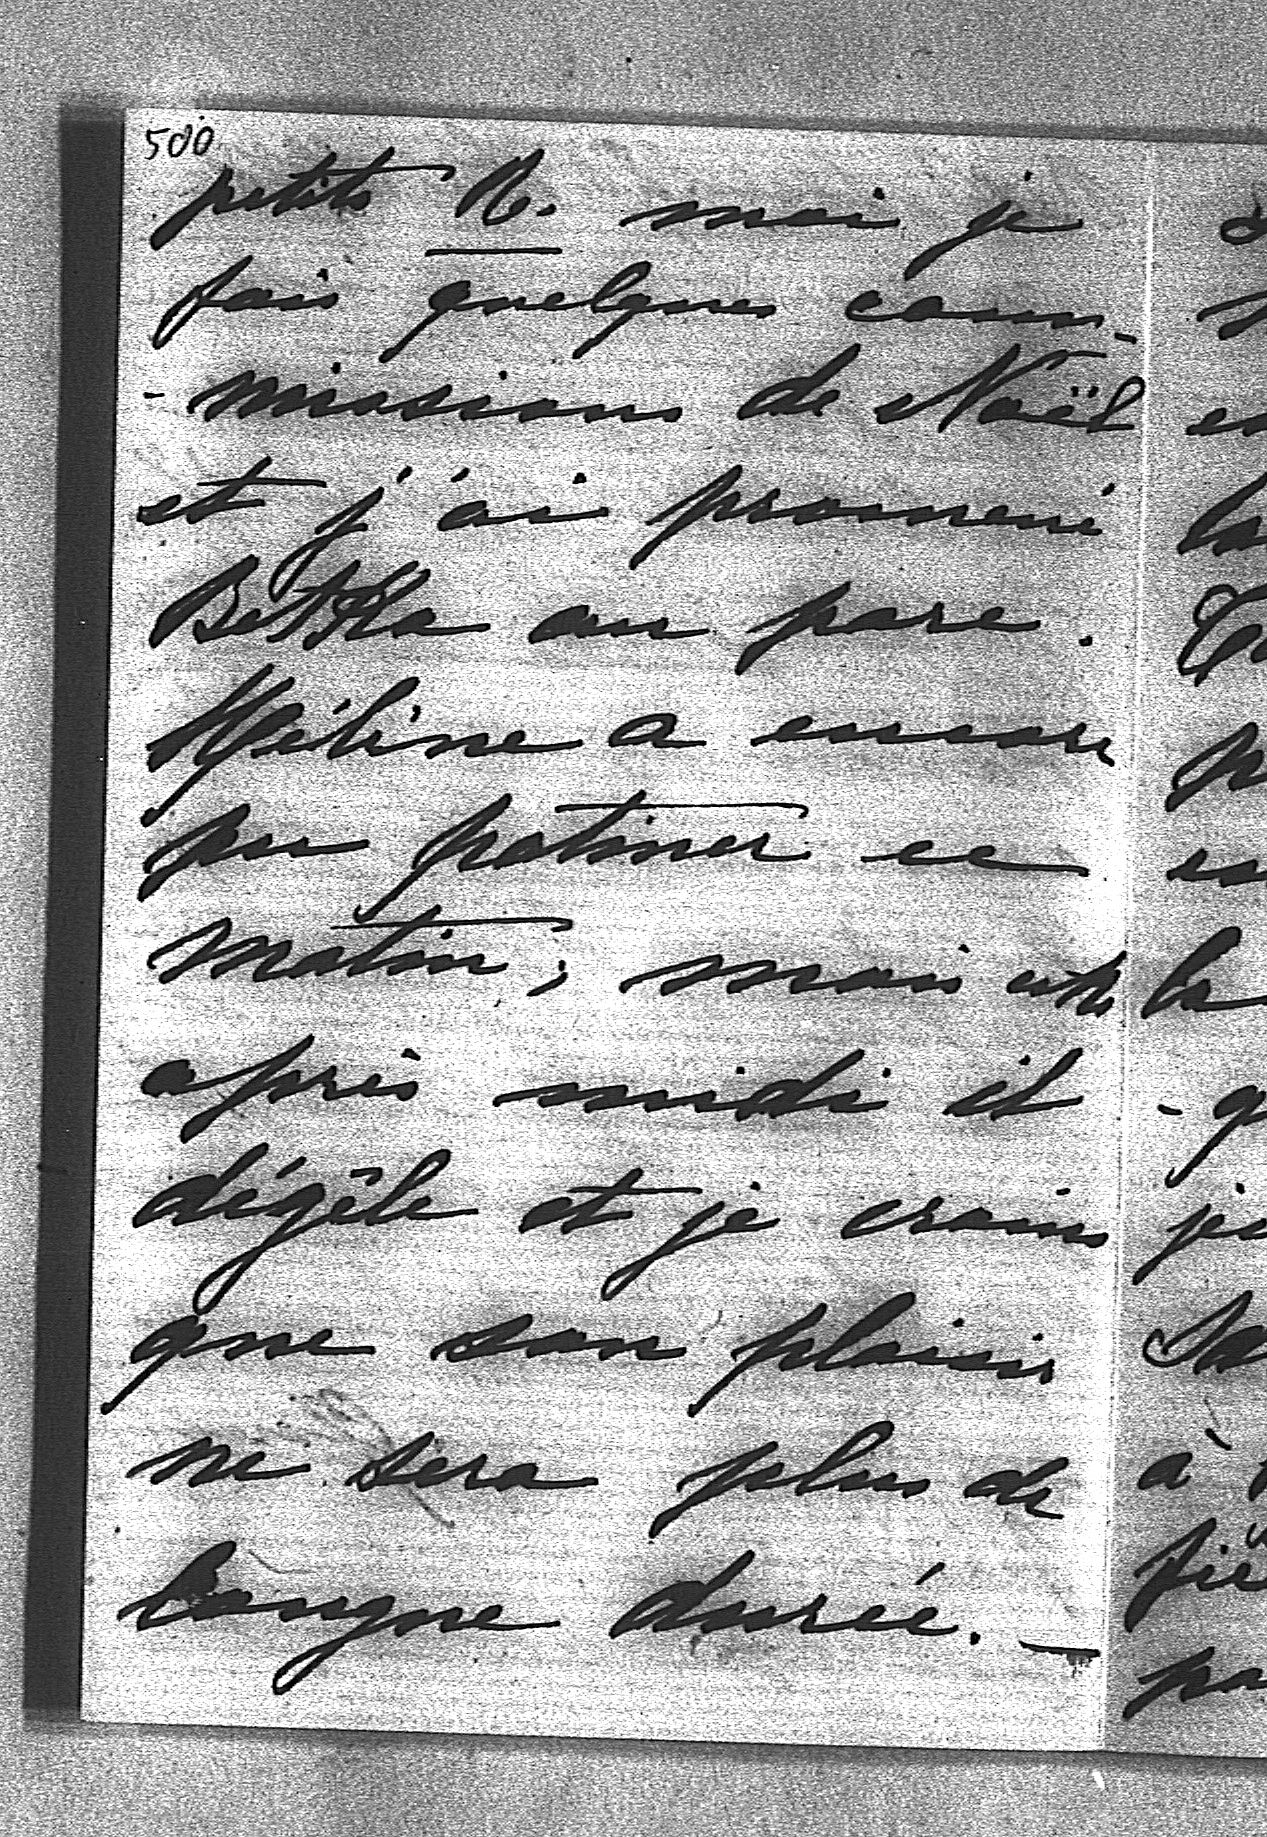 500
petits R. moi je
fais quelques com-
-missions de Noël
et j'ai promené
Bettka au parc.
Héléne a encore
pu patiner ce
matin; mais cette
après midi il
dégêle et je crains
que son plaisir
ne sera plus de
longue durée. —